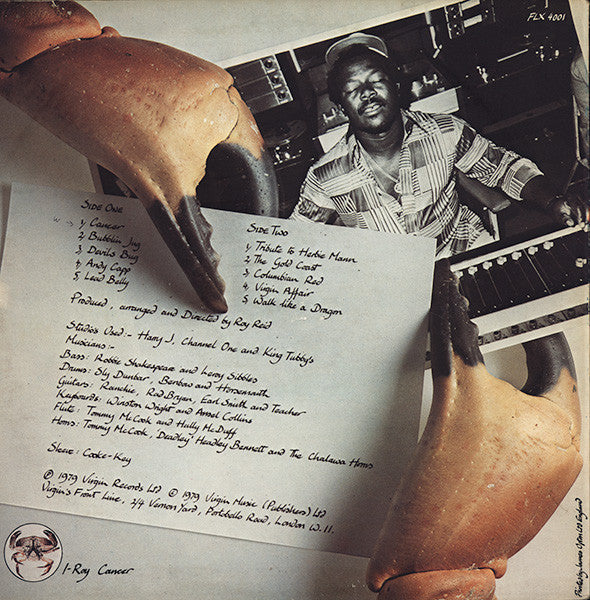 FLX 4001
Side One
1, Cancer
2, Bubblin Jug
3, Devils Bug
4, Andy Capp
5, Lead Belly
Side Two
1, Tribute to Herbie Mann
2, The Gold Coast
3, Columbian Red
4, Virgin Affair
5, Walk like a Dragon
Produced, arranged and Directed by Roy Reid
Studios Used :- Harry J, Channel One and King Tubbys
Musicians :-
Bass: Robbie Shakespeare and Leroy Sibbles
Drums: Sly Dunbar, Benbow and Horsemouth
Guitars: Ranchie, Rad Bryan, Earl Smith and Teacher
Keyboards: Winston Wright and Ansel Collins
Flute: Tommy McCook and Hully McDuff
Horns: Tommy McCook, Deadley Headley Bennett and The Chalawa Horns
Sleeve: Cooke-Key
Ⓟ 1979 Virgin Records Ltd © 1979 Virgin Music (Publishers) Ltd
Virgin's Front Line, 2/4 Vernon Yard, Portobello Road, London W.11.
I-Roy Cancer
Printed by James Upton Ltd England